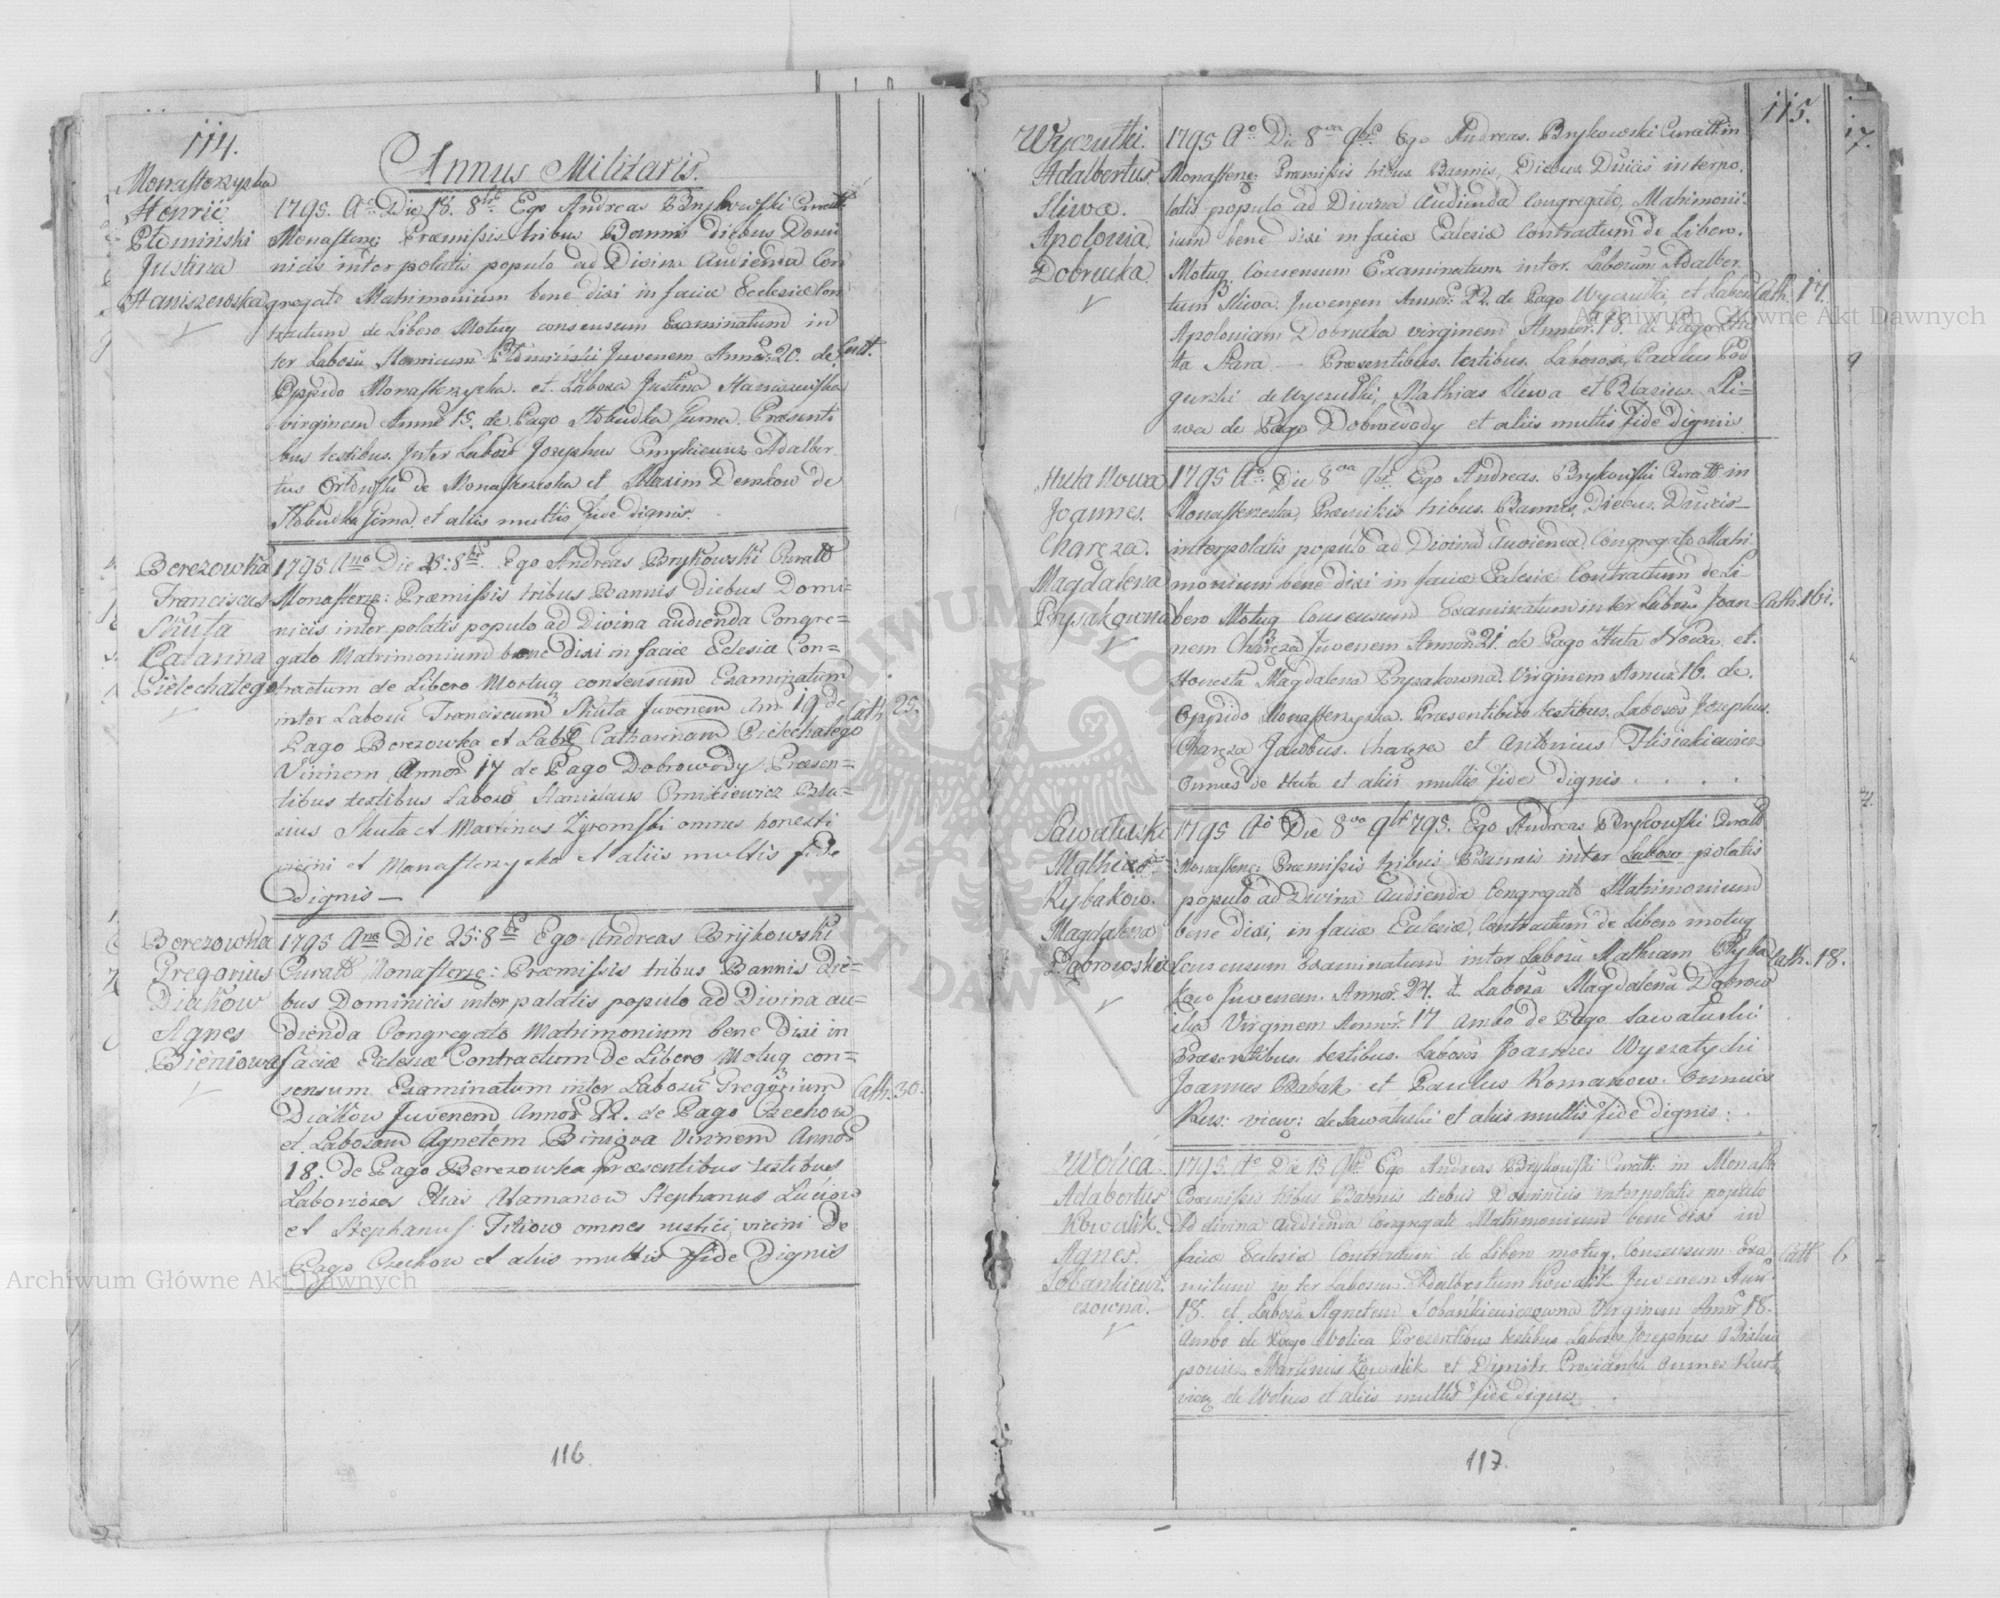 114.
Annus Militaris.
Monasterzyska
Henric
Justina
Staniszewska
1795. Ao Die 18. 8bris Ego Andreas Brykowski Curatt
Monasterz: Præmissis tribus Bannis diebus Domi
nicis interpolatis populo ad Divina Audienda Con
gregato Matrimonium bene dixi in faciæ Ecclesiæ Con
tractum de Libero Motuq consensum Examinatum in
ter Laboru Henricum Juvenem Annor. 20. de
Oppido Monasterzyska. et Labora Justina Staniszewska
virginem Annor 15. de Pago Præsenti
bus testibus. Inter Labor Josephus Adalber
tus de Monasterzyska et Maxim Demkow de
et aliis multis fide dignis.
Catt.
Berezowka
Franciscus
Skuta
Catarina
Pielechatego
1795 Ano Die 25: 8bris. Ego Andreas Brykowski Curatt
Monasterz: Præmissis tribus Bannis Diebus Domi=
nicis inter polatis populo ad Divina audienda Congre=
gato Matrimonium bene dixi in faciæ Eclesiæ Con=
tractum de Libero Mortuq consensum Examinatum
inter Laboru Franciscum Skuta Juvenem An: 19 de
Pago Berezowka et Labo Catharinam Pielechatego
Virinem Annor 17 de Pago Dobrowody Præsen=
tibus testibus Laboro Stanislaus
Skuta et Martinus Zyromski omnes honesti
vicini et Monasterzyska et aliis multis fide
Dignis —
Cath. 25.
Berezowka
Gregorius
Diakow
Agnes
Bieniowa
1795 Ano Die 25: 8bris Ego Andreas Brijkowski
Curatt Monasterz: Præmissis tribus Bannis Die=
bus Dominicis inter palatis populo ad Divina au=
dienda Congregato Matrimonium bene Dixi in
faciæ Eclesiæ Contractum de Libero Motuq con=
sensum Examinatum inter Laboru Gregorium
Diakow Juvenem Annor 22. de Pago Czechow
et Laboram Agnetem Biniova Virinem Annor
18. de Pago Berezowka præsentibus testibus
Laboriosos Elias Atamanow Stephanus Luciow
et Stephanus Titiow omnes rustici vicini de
Pago Czechow et aliis multis fide Dignis
Cath. 30.
116.
115.
Wyczułki.
Adalbertus
Sliwa.
Apolonia
Dobrucka
1795 Ao Die 8va 9bris Ego Andreas. Brykowski Curatt in
Monasterz: Præmissis tribus Bannis, Diebus Dnicis interpo.
latis populo ad Divina Audienda Congregato, Matrimoni.
ium bene dixi in faciæ Eclesiæ Contractum de Libero.
Motuq Consensum Examinatum inter. Laborum Adalber.
tum Sliwa. Juvenem Annor: 22. de Pago Wyczułki, et Labor
Apoloniam Dobrucka virginem Annor. 18. de Pago Hu
ta Stara — Præsentibus. testibus. Laborosi, Paulus Pod
gurski de Wyczułki, Mathias Sliwa et Blasius Sli=
wa de Pago Dobrowody et aliis multis fide dignis
Cath. 17.
Huta Nowa
Joannes.
Charęza.
Magdalena
Prysakowna
1795 Ao. Die 8va 9bris. Ego Andreas. Brykowski Curatt in
Monasterzyska, Præmissis tribus. Bannis, Diebus. Dnicis
interpolatis populo ad Divina Audienda. Congregato Matri
monium bene dixi in faciæ Eclesiæ Contractum de Li
bero Motuq Consensum Examinatum inter Laboro Joan
nem Charęza Juvenem Annor. 21. de Pago Huta Nowa. et.
Honesta Magdalena Prysakowna. Virginem Annor 16. de.
Oppido Monasterzyska. Præsentibus testibus. Laboros Josephus.
Charęza Jacobus. Charęza et Antonius
Omnes de Huta et aliis multis fide dignis . . . .
Cath. 16.
Sawałuski
Mathias
Rybakow.
Magdalena
Dąbrowska
1795 Ao Die 8va 9br 795. Ego Andreas Brykowski Curatt
Monasterz: Præmissis tribus Bannis inter Labow polatis
populo ad Divina Audienda Congregato Matrimonium
bene dixi, in faciæ Eclesiæ, Contractum de Libero motuq
Consensum examinatum inter Laboru Mathiam Ryba
kow Juvenem. Annor. 24. et Labora Magdalena Dąbrow
ska Virginem Annor. 17 ambo de Pago Sawałuski
Præsentibus. testibus. Laboros Joannes
Joannes Babak et Paulus Romanow. Omnes
Rus: vicin: de Sawałuski et aliis multis fide dignis:
Cath. 18.
Wolica
Adabertus
Kowalik.
Agnes.
Sobankiewi.
czowna.
1795. Ao Die 15 9bris Ego Andreas Brykowski Curatt: in Monast:
Præmissis tribus Bannis diebus Dominicis interpolatis populo
Ad divina audienda Congregato Matrimonium bene dixi in
faciæ Eclesiæ Contractum de Libero motuq. Consensum Exa
mitum inter Laborum Adalbertum Kowalik Juvenem Ann.
18. et Labora Agnetem Sobankiewiczowna Virginem Annor 18.
Ambo de Pago Wolica Presentibus testibus Laboros Josephus
Martinus Kowalik et Dymitr omnes Rust
vicin de Wolica et aliis multis fide dignis
Cath 6
117.
17.
9
Archiwum Główne Akt Dawnych
Archiwum Główne Akt Dawnych
ARCHIWUM GŁÓWNE AKT DAWNYCH